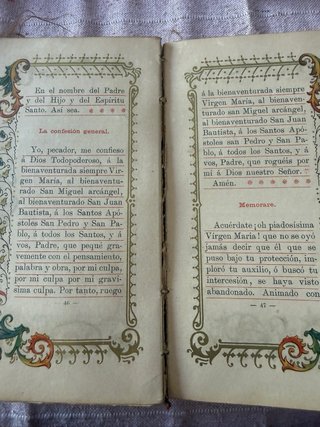 En el nombre del Padre
y del Hijo y del Espíritu
Santo. Así sea.
La confesión general.
Yo, pecador, me confieso
á Dios Todopoderoso, á la
bienaventurada siempre Vir-
gen María, al bienaventu-
rado San Miguel arcángel,
al bienaventurado San Juan
Bautista, á los Santos Após-
toles San Pedro y San Pa-
blo, á todos los Santos, y á
vos, Padre, que pequé gra-
vemente con el pensamiento,
palabra y obra, por mi culpa,
por mi culpa, por mi graví-
sima culpa. Por tanto, ruego
— 46 —
á la bienaventurada siempre
Virgen María, al bienaven-
turado san Miguel arcángel,
al bienaventurado San Juan
Bautista, á los Santos Após-
toles san Pedro y San Pa-
blo, á todos los Santos, y á
vos, Padre, que roguéis por
mí á Dios nuestro Señor.
Amén.
Memorare.
Acuérdate ¡oh piadosísima
Virgen María! que no se oyó
jamás decir que él que se
puso bajo tu protección, im-
ploró tu auxilio, ó buscó tu
intercesión, se haya visto
abandonado. Animado con
— 47 —